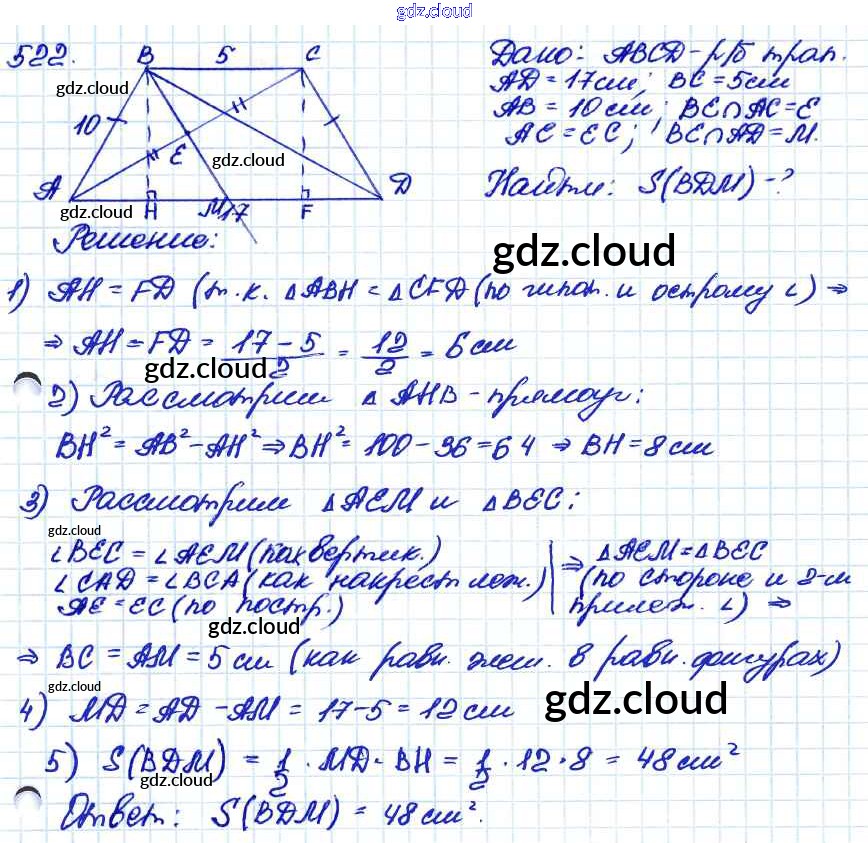 gdz.cloud
522.
B 5 C
10
A E D
H M 17 F
Дано: ABCD - р/б трап.
AD = 17 см; BC = 5 см
AB = 10 см; BE∩AC = E
AC = EC; BE∩AD = M.
Найти: S(BDM) - ?
gdz.cloud
gdz.cloud
gdz.cloud
Решение:
gdz.cloud
1) AH = FD (т.к. △ABH = △CFD (по гипот. и острому ∠) ⇒
⇒ AH = FD = (17 - 5)/2 = 12/2 = 6 см
gdz.cloud
2) Рассмотрим △AHB - прямоуг:
BH² = AB² - AH² ⇒ BH² = 100 - 36 = 64 ⇒ BH = 8 см
3) Рассмотрим △AEM и △BEC:
gdz.cloud
∠BEC = ∠AEM (как вертик.)
∠CAD = ∠BCA (как накрест леж.)
AE = EC (по постр.)
⇒ △AEM = △BEC
(по стороне и 2-м
прилеж. ∠) ⇒
gdz.cloud
⇒ BC = AM = 5 см (как равн. элем. в равн. фигурах)
gdz.cloud
4) MD = AD - AM = 17 - 5 = 12 см
gdz.cloud
5) S(BDM) = 1/2 · MD · BH = 1/2 · 12 · 8 = 48 см²
gdz.cloud
Ответ: S(BDM) = 48 см².